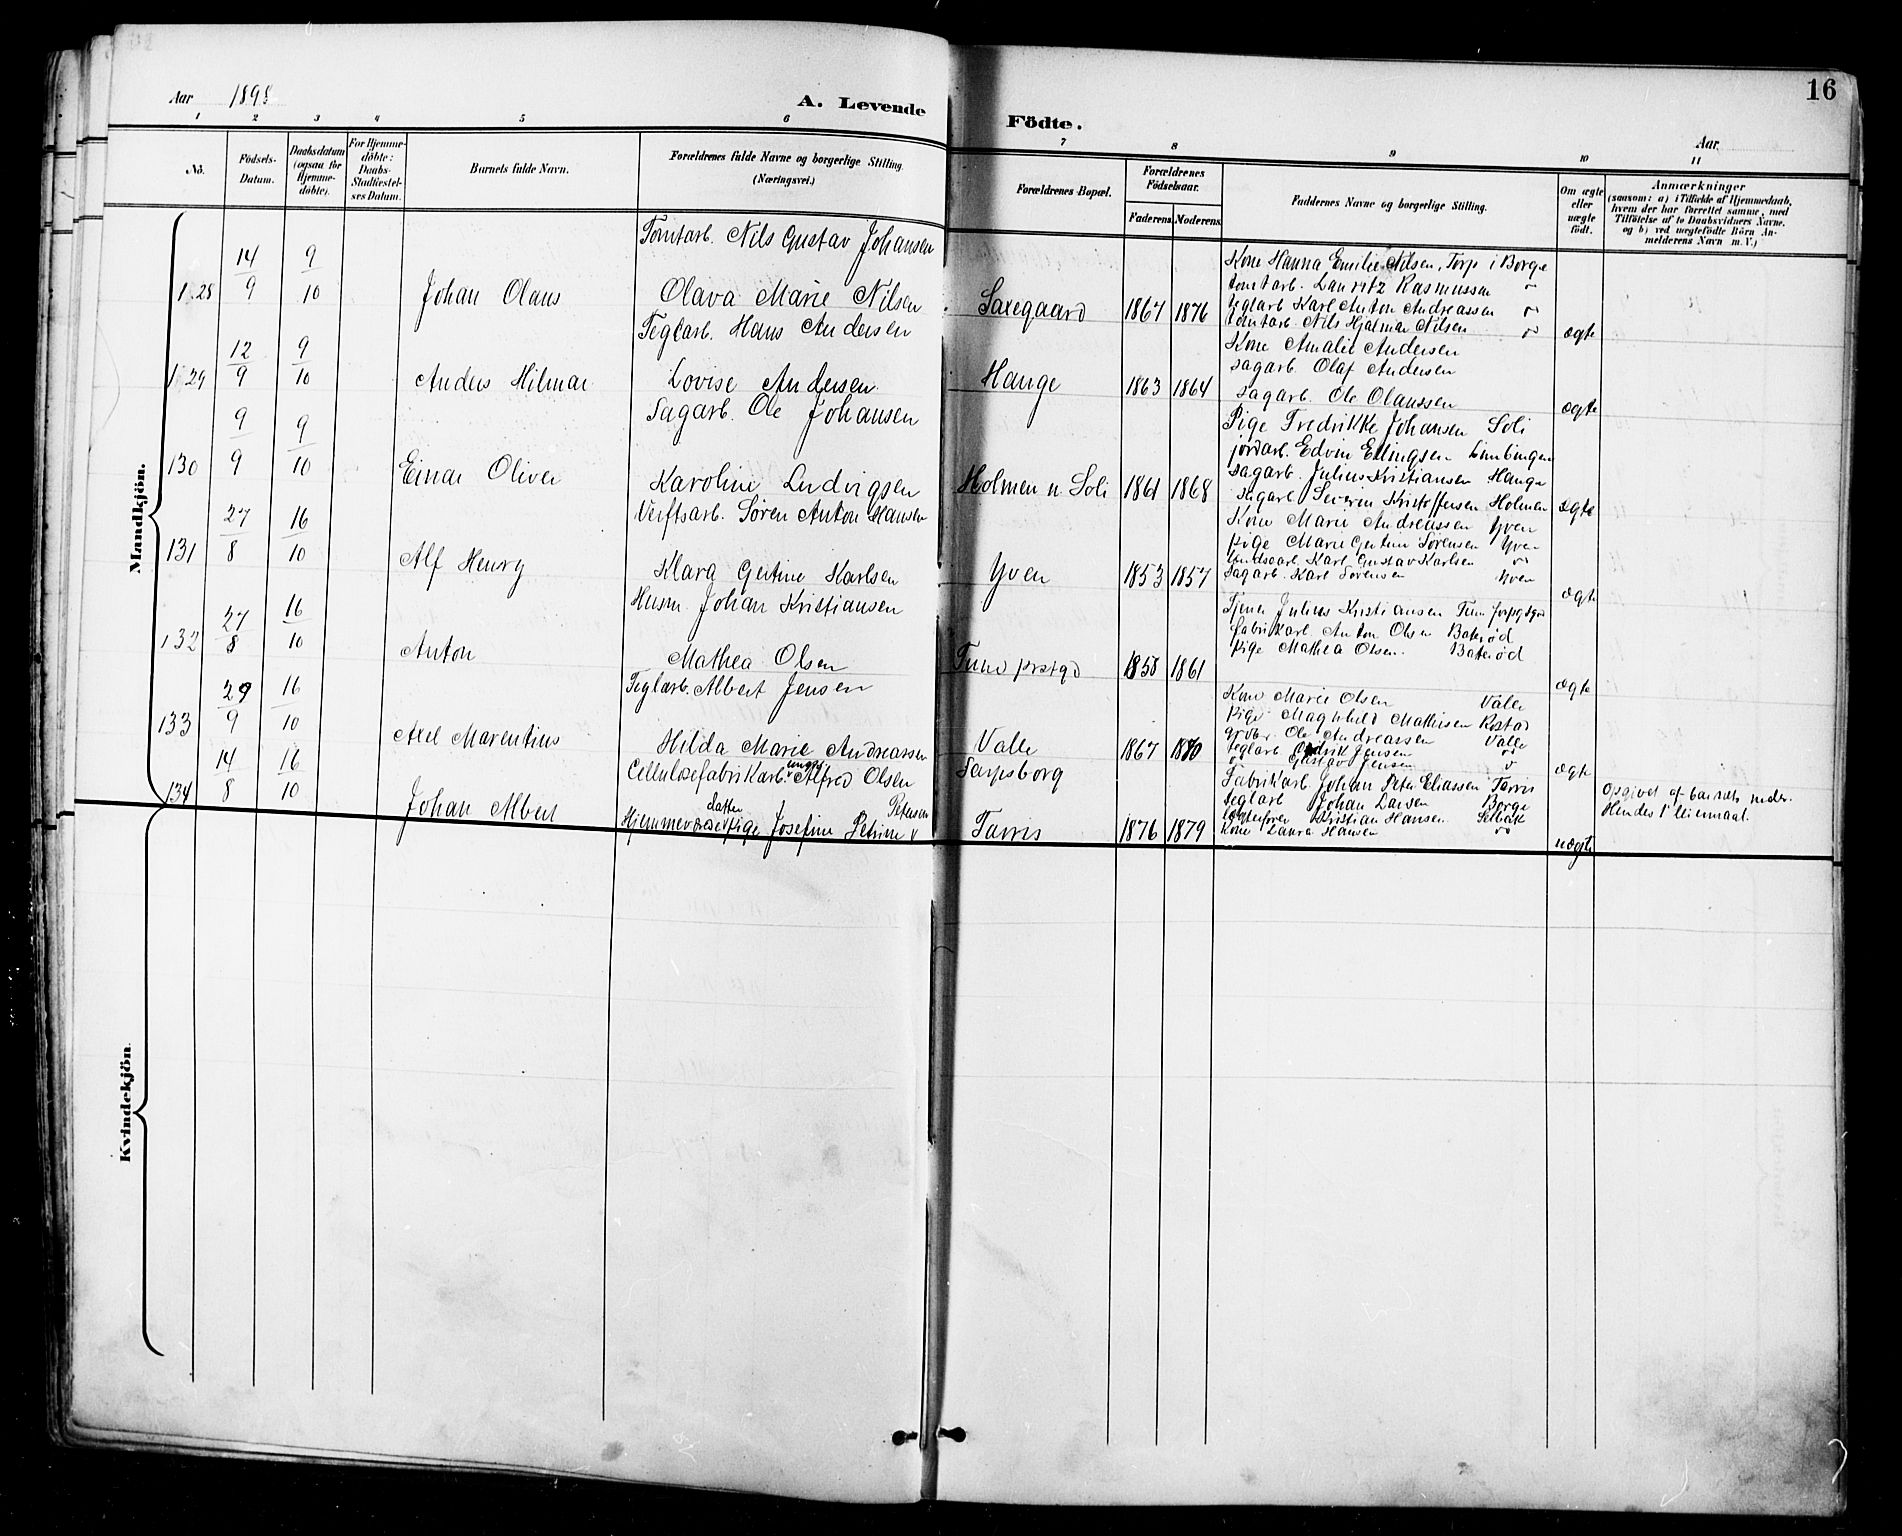 16
Aar 1898
A. Levende Födte.
Aar
1 2 3 4 5 6 7 8 9 10 11
No.
Födsels-Datum.
Daabsdatum (ogsaa för Hjemme-döbte).
For Hjemme-döbte: Daabs-Stadfæstel-ses Datum.
Barnets fulde Navn.
Forældrenes fulde Navne og borgerlige Stilling. (Næringsvei.)
Forældrenes Bopæl.
Forældrenes Födselsaar.
Faderens. Moderens.
Faddernes Navne og borgerlige Stilling.
Om ægte eller uægte födt.
Anmærkninger (saasom: a) i Tilfælde af Hjemmedaab, hvem der har forrettet samme, med Tilföielse af to Daabsvidners Navne, og b) ved uægtefödte Börn Anmelderens Navn m. V.)
Mandkjön.
128 14/9 9/10 Johan Olaus
Tomtarb. Nils Gustav Johansen
Olava Marie Nilsen
Saxegaard 1867 1876
Kone Hanna Emilie Nilsen, Torp i Borge
tomtarb. Lauritz Rasmussen
teglarb Karl Anton Andreassen
tomtarb. Nils Hjalmar Nilsen
ægte
129 12/9 9/10 Anders Hilmar
Teglarb. Hans Andersen
Lovise Andersen
Hauge 1863 1864
Kone Amalie Andersen
sagarb. Olaf Andersen
sagarb. Ole Olaussen
ægte
130 9/9 9/10 Einar Oliver
Sagarb. Ole Johansen
Karoline Ludvigsen
Holmen u Soli 1861 1868
Pige Fredrikke Johansen Soli
jordarb. Edvin Ellingsen
sagarb. Julius Kristiansen Hauge
sagarb Severin Kristoffersen Holmen
ægte
131 27/8 16/10 Alf Henry
Verftsarb. Søren Anton Hansen
Klara Gertine Karlsen
Yven 1853 1857
Kone Marie Andreassen Yven
pige Marie Gertine Sørensen Yven
Karl Gustav Karlsen
Sagarb. Karl Sørensen Yven
ægte
132 27/8 16/10 Anton
Husm. Johan Kristiansen
Mathea Olsen
Tune prstgd 1858 1861
Tjener Julius Kristiansen Tune
fabrikarb. Anton Olsen Baterød
pige Mathea Olsen. Baterød
ægte
133 29/9 16/10 Axel Marentius
Teglarb. Albert Jensen
Hilda Marie Andreassen
Valle 1867 1870
Kone Marie Olsen Valle
pige Maghild Mathisen Rostad
grbr. Ole Andreassen Valle
teglarb. Jensen
Gustav Jensen
ægte
134 14/8 16/10 Johan Albert
Cellulosefabrikarb. ungk. Alfred Olsen
Hjemmeværepige datter Josefine Petrine Petersen
Sarpsborg
Tarris 1876 1879
Fabrikarb Johan Peter Eliassen Tarris
teglarb Johan Larsen Borge
Kristian Hansen Selbak
Kone Laura Hansen
uægte
Opgivet af barnets moder.
Hendes 1ste leiermaal.
Kvindekjön.